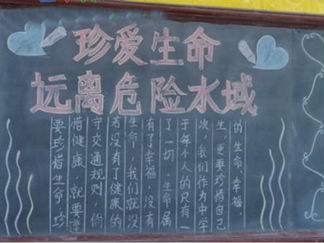 珍爱生命
远离危险水域
要珍惜生命，珍
惜健康，就要遵
守交通规则，你
若没有了健康的
生命，我们就没
有了幸福，没有
了一切，生命属
于每个人的只有一
次，我们作为中学
生，更要珍惜自己
的生命、幸福